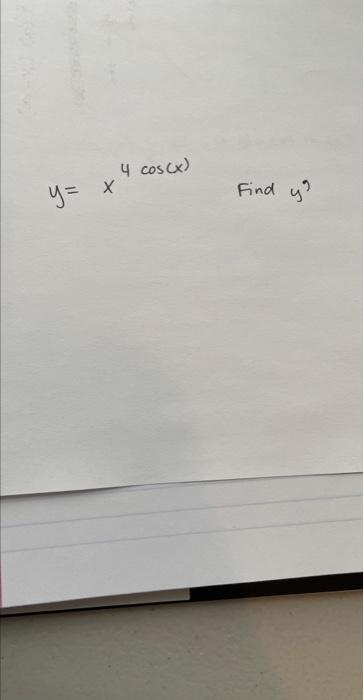 y= x^4 cos(x) Find y'